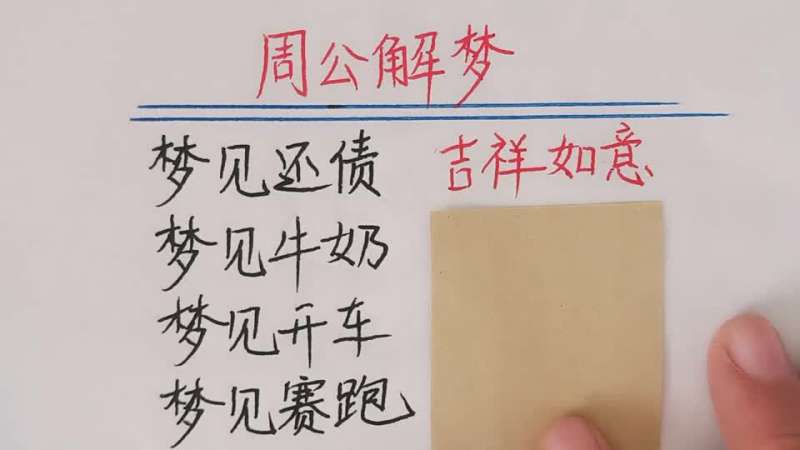 周公解梦
梦见还债 吉祥如意
梦见牛奶
梦见开车
梦见赛跑